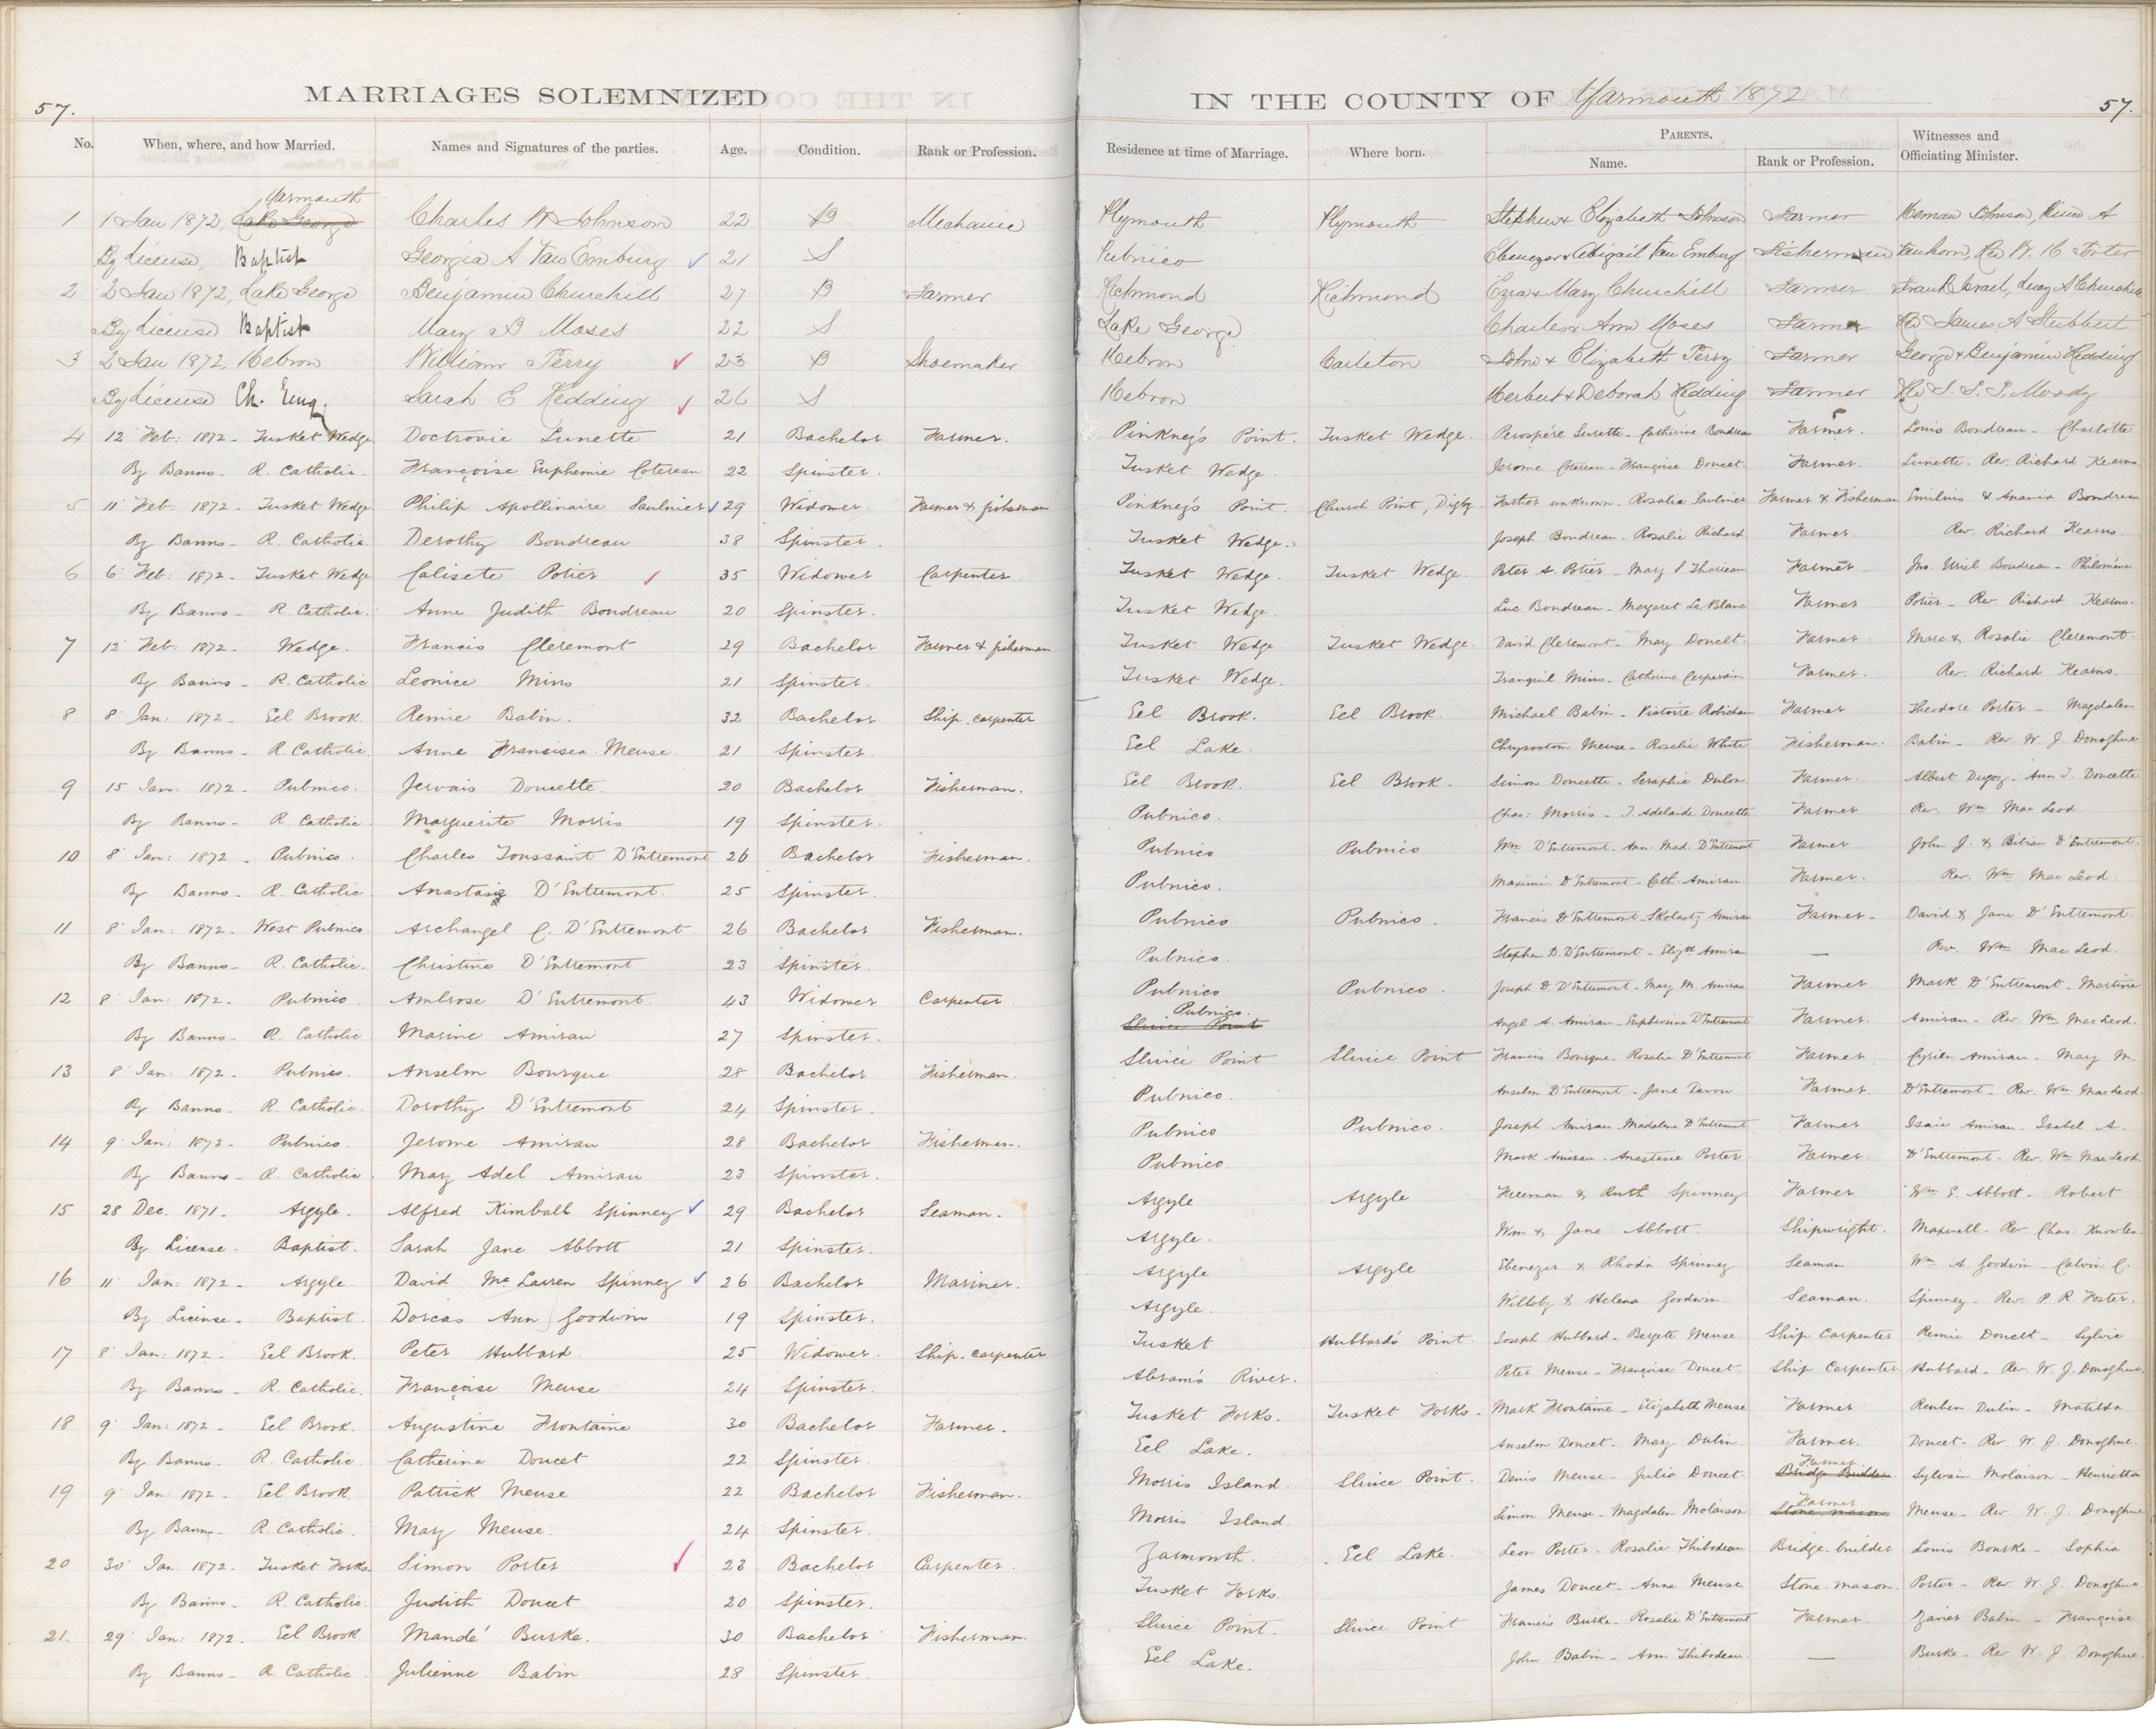 57.
MARRIAGES SOLEMNIZED
IN THE COUNTY OF Yarmouth 1872
57.
No. When, where, and how Married. Names and Signatures of the parties. Age. Condition. Rank or Profession. Residence at time of Marriage. Where born. PARENTS. Name. Rank or Profession. Witnesses and Officiating Minister.
Yarmouth
1 1 Jan 1872, Lake George Charles H Johnson 22 B Mechanic Plymouth Plymouth Stephen & Elizabeth Johnson Farmer Heman Johnson, A
By License, Baptist Georgia A Van Emburg 21 S Pubnico Ebenezer & Abigail Van Emburg Fisherman Vanhorn, Rev Foster
2 2 Jan 1872, Lake George Benjamin Churchill 27 B Farmer Richmond Richmond Ezra & Mary Churchill Farmer Frank Israel, Lucy A Churchill
By License Baptist Mary B Moses 22 S Lake George Charles & Ann Moses Farmer Rev James A Stubbert
3 2 Jan 1872, Hebron William Perry 23 B Shoemaker Hebron Carleton John & Elizabeth Perry Farmer George & Benjamin Redding
By License Ch. Eng. Sarah E Redding 26 S Hebron Herbert & Deborah Redding Farmer Rev J. T. T. Moody
4 12 Feb: 1872 - Tusket Wedge Doctrovie Surette 21 Bachelor Farmer. Pinkney's Point. Tusket Wedge. Prospére Surette - Catherine Boudreau Farmer. Louis Boudreau - Charlotte
By Banns - R. Catholic. Françoise Euphemie Cotereau 22 Spinster. Tusket Wedge. Jerome Cotereau - Françoise Doucet Farmer. Surette. Rev. Richard Kearns.
5 11 Feb: 1872 - Tusket Wedge Philip Apollinaire Saulnier 29 Widower. Farmer & fisherman Pinkney's Point. Church Point, Digby. Father unknown - Rosalie Saulnier Farmer & Fisherman Emilius & Anania Boudreau
By Banns - R. Catholic. Derothy Boudreau 38 Spinster. Tusket Wedge. Joseph Boudreau - Rosalie Richard Farmer. Rev. Richard Kearns.
6 6 Feb: 1872 - Tusket Wedge Calisete Potier 35 Widower Carpenter Tusket Wedge. Tusket Wedge. Peter A. Potier - Mary Farmer Jno. Uriel Boudreau - Philoméne
By Banns - R. Catholic. Anne Judith Boudreau 20 Spinster. Tusket Wedge Luc Boudreau - Margaret Le Blanc Farmer Potier - Rev Richard Kearns.
7 12 Feb: 1872 - Wedge. Francis Cleremont 29 Bachelor Farmer & fisherman Tusket Wedge Tusket Wedge. David Cleremont - Mary Doucet. Farmer Marc & Rosalie Cleremont
By Banns - R. Catholic Leonice Mius 21 Spinster. Tusket Wedge. Tranquil Mius - Catherine Farmer. Rev. Richard Kearns.
8 8 Jan: 1872 - Eel Brook. Remie Babin. 32 Bachelor Ship-carpenter Eel Brook. Eel Brook. Michael Babin - Victoire Robichau Farmer Theodore Porter - Magdalen
By Banns - R. Catholic. Anne Francisca Meuse 21 Spinster. Eel Lake. Chrysostom Meuse - Rosalie White Fisherman. Babin - Rev. W. J. Donoghue
9 15 Jan: 1872 - Pubnico. Jervais Doucette. 20 Bachelor Fisherman. Eel Brook. Eel Brook. Simon Doucette - Seraphie Dulon Farmer. Albert - Ann T. Doucette
By Banns - R. Catholic. Marguerite Morris 19 Spinster. Pubnico. Chas: Morris - T. Adelaide Doucette Farmer Rev. Wm Mac Leod.
10 8 Jan: 1872 - Pubnico. Charles Toussaint D'Entremont 26 Bachelor Fisherman. Pubnico Pubnico Wm D'Entremont - Ann. Mad. D'Entremont Farmer John J. & D'Entremont.
By Banns - R. Catholic. Anastasie D'Entremont. 25 Spinster. Pubnico. Maximin D'Entremont - Cath. Amirau Farmer. Rev. Wm Mac Leod.
11 8 Jan: 1872 - West Pubnico Archangel C. D'Entremont. 26 Bachelor Fisherman. Pubnico Pubnico. Francis D'Entremont - Skolasty Amirau Farmer - David & Jane D'Entremont.
By Banns - R. Catholic. Christine D'Entremont 23 Spinster. Pubnico. Stephen D. D'Entremont - Elizth Amirau — Rev. Wm Mac Leod.
12 8 Jan: 1872 - Pubnico Ambrose D'Entremont. 43 Widower Carpenter. Pubnico Pubnico. Joseph D. D'Entremont - Mary M. Amirau Farmer Mark D'Entremont - Martine
Pubnico.
By Banns - R. Catholic Marine Amirau 27 Spinster. Sluice Point Angel A. Amirau - Euphrosine D'Entremont Farmer. Amirau - Rev. Wm Mac Leod.
13 8 Jan: 1872. Pubnico. Anselm Bourque 28 Bachelor Fisherman. Sluice Point Sluice Point Francis Bourque - Rosalie D'Entremont Farmer Cyrien Amirau - Mary M.
By Banns. R. Catholic. Dorothy D'Entremont 24 Spinster. Pubnico. Anselm D'Entremont - Jane Farmer. D'Entremont - Rev. Wm Mac Leod.
14 9 Jan: 1872 - Pubnico. Jerome Amirau 28 Bachelor Fisherman. Pubnico Pubnico. Joseph Amirau - Madalene D'Entremont Farmer Isaie Amirau. Isabel A.
By Banns - R. Catholic. Mary Adel Amirau 23 Spinster. Pubnico Mark Amirau - Anastasie Porter Farmer. D'Entremont - Rev. Wm Mac Leod
15 28 Dec. 1871. Argyle. Alfred Kimball Spinney 29 Bachelor Seaman. Argyle Argyle Freeman & Ruth Spinney Farmer Wm E. Abbott - Robert
By License - Baptist. Sarah Jane Abbott 21 Spinster. Argyle. Wm & Jane Abbott. Shipwright. Maxwell - Rev. Chas. Knowles.
16 11 Jan: 1872 - Argyle. David Mc Laren Spinney 26 Bachelor Mariner. Argyle Argyle Ebenezer & Rhoda Spinney Seaman Wm A. Goodwin - Calvin C.
By License - Baptist. Dorcas Ann Goodwin 19 Spinster. Argyle. Willoby & Helena Goodwin Seaman. Spinney - Rev. P. R. Foster.
17 8 Jan: 1872 - Eel Brook. Peter Hubbard. 25 Widower. Ship-carpenter Tusket Hubbard's Point Joseph Hubbard - Meuse Ship Carpenter Remie Doucet - Sylvie
By Banns - R. Catholic. Françoise Meuse 24 Spinster. Abram's River. Peter Meuse - Françoise Doucet. Ship Carpenter Hubbard - Rev. W. J. Donoghue.
18 9 Jan: 1872 - Eel Brook. Augustine Frontaine 30 Bachelor Farmer. Tusket Forks. Tusket Forks - Mark Frontaine - Elizabeth Meuse Farmer Reuben Dulin - Matilda
By Banns. R. Catholic. Catherine Doucet 22 Spinster. Eel Lake. Anselm Doucet - Mary Dulin. Farmer. Doucet - Rev. W. J. Donoghue.
Farmer.
19 9 Jan: 1872 - Eel Brook Patrick Meuse 22 Bachelor Fisherman. Morris Island. Sluice Point. Denis Meuse - Julia Doucet. Bridge Builder Sylvain Molaison - Henrietta
Farmer
By Banns - R. Catholic. Mary Meuse. 24 Spinster. Morris Island. Simon Meuse - Magdalen Molaison Stone mason Meuse - Rev. W. J. Donoghue
20 30 Jan: 1872. Tusket Forks Simon Porter 23 Bachelor Carpenter. Yarmouth. Eel Lake. Leon Porter. Rosalie Thibodeau Bridge-builder Louis Bourke - Sophia
By Banns - R. Catholic. Judith Doucet 20 Spinster. Tusket Forks. James Doucet - Anne Meuse Stone-mason. Porter - Rev. W. J. Donoghue
21. 29 Jan: 1872. Eel Brook Mandé Burke. 30 Bachelor Fisherman. Sluice Point. Sluice Point Francis Burke - Rosalie D'Entremont Farmer. Babin - Françoise
By Banns - R. Catholic. Julienne Babin 28 Spinster. Eel Lake. John Babin - Ann Thibodeau. — Burke - Rev W. J. Donoghue.